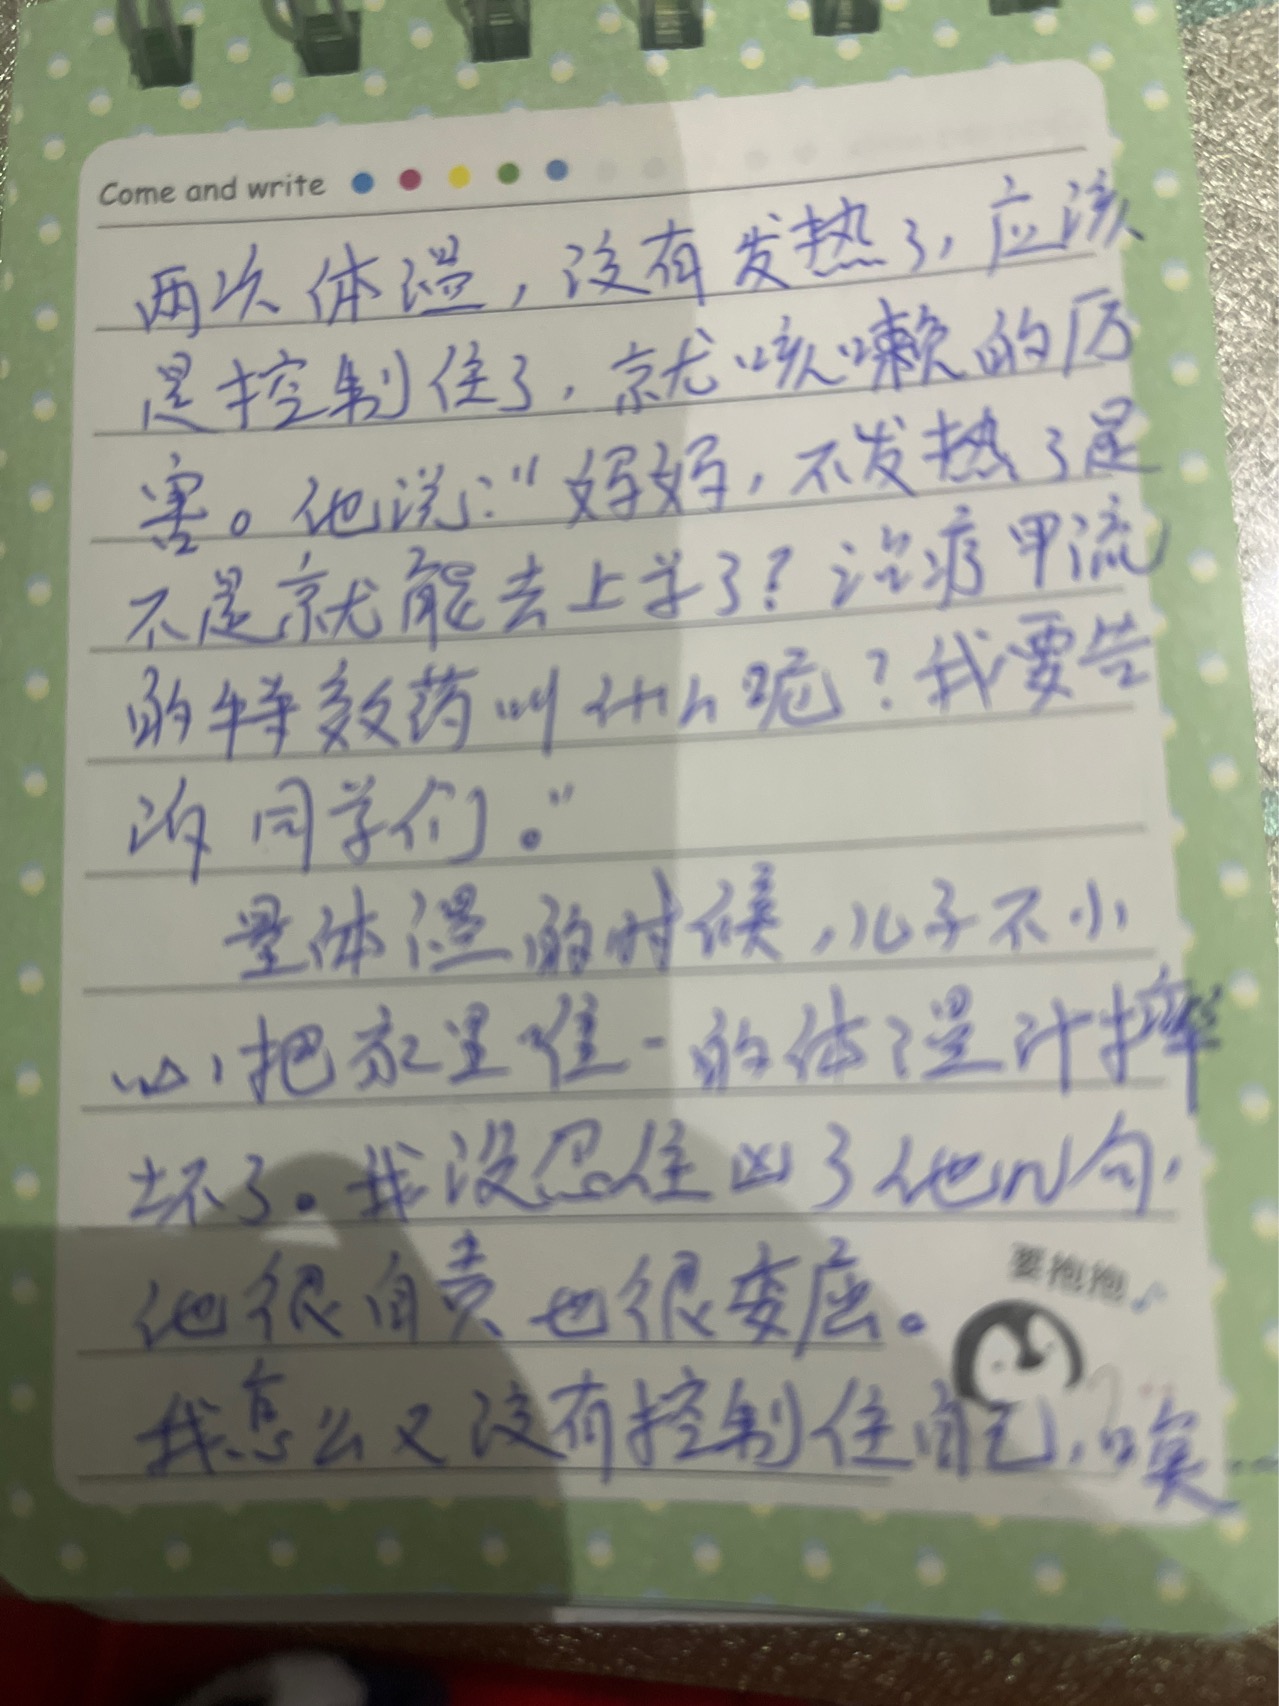 Come and write
两次体温，没有发热了，应该
是控制住了，就咳嗽的厉
害。他说："妈妈，不发热了是
不是就能去上学了？治疗甲流
的特效药叫什么呢？我要告
诉同学们。"
量体温的时候，儿子不小
心把家里唯一的体温计摔
坏了。我没忍住凶了他几句，
他很自责也很委屈。
要抱抱
我怎么又没有控制住自己，唉……